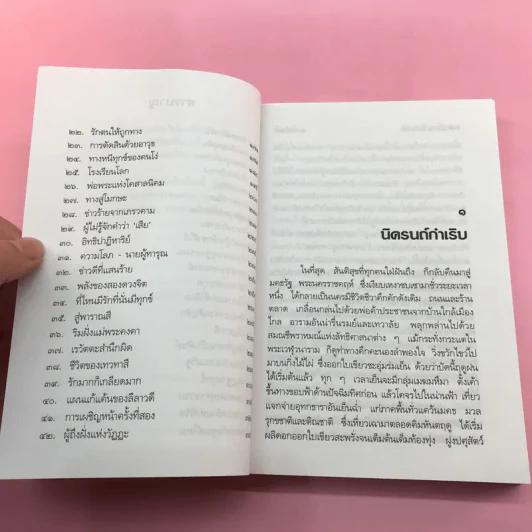 ๒๒. รักตนให้ถูกทาง
๒๓. การตัดสินด้วยอาวุธ
๒๔. ทางหนีทุกข์ของคนโง่
๒๕. โรงเรียนโลก
๒๖. พ่อพระแห่งโคสาลนิคม
๒๗. ทางสู่โมกษะ
๒๘. ข่าวร้ายจากเภรวคาม
๒๙. ผู้ไม่รู้จักคำว่า 'เสีย'
๓๐. อิทธิปาฏิหาริย์
๓๑. ความโลภ - นายผู้ทารุณ
๓๒. ข่าวดีที่แสนร้าย
๓๓. พลังของสองดวงจิต
๓๔. ที่ไหนมีรักที่นั่นมีทุกข์
๓๕. สู่พาราณสี
๓๖. ริมฝั่งแม่พระคงคา
๓๗. เรวัตตะสำนึกผิด
๓๘. ชีวิตของเทวทาสี
๓๙. รักมากก็เกลียดมาก
๔๐. แผนแก้แค้นของลีลาวดี
๔๑. การเผชิญหน้าครั้งที่สอง
๔๒. ผู้ถึงฝั่งแห่งวัฏฏะ
๑
นิครนถ์กำเริบ
ในที่สุด สันติสุขที่ทุกคนใฝ่ฝันถึง ก็กลับคืนมาสู่
มคธรัฐ พระนครราชคฤห์ ซึ่งเงียบเหงาซบเซามาชั่วระยะเวลา
หนึ่ง ได้กลายเป็นนครมีชีวิตชีวาคึกคักดังเดิม ถนนและร้าน
ตลาด เกลื่อนกล่นไปด้วยพ่อค้าประชาชนจากบ้านใกล้เมือง
ไกล อารามอันน่ารื่นรมย์และเทวาลัย พลุกพล่านไปด้วย
สมณชีพราหมณ์แห่งลัทธิศาสนาต่าง ๆ แม้กระทั่งกระแตใน
พระเวฬุวนาราม ก็ดูท่าทางคึกคะนองลำพองใจ วิ่งขวักไขว่ไป
มาบนกิ่งไม้ไผ่ ซึ่งออกใบเขียวชะอุ่มร่มเย็น ด้วยว่าบัดนี้ฤดูฝน
ได้เริ่มต้นแล้ว ทุก ๆ เวลาเย็นจะมีกลุ่มเมฆมหึมา ตั้งเค้า
ขึ้นทางขอบฟ้าด้านปัจฉิมทิศก่อน แล้วโคจรไปในน่านฟ้า เที่ยว
แจกจ่ายอุทกธาราอันเย็นฉ่ำ แก่ภาคพื้นทั่วแคว้นมคธ มวล
รุกขชาติและติณชาติ ซึ่งเหี่ยวเฉามาตลอดคิมหันตฤดู ได้เริ่ม
ผลิดอกออกใบเขียวสะพรั่งจนเต็มต้นเต็มท้องทุ่ง ฝูงปศุสัตว์